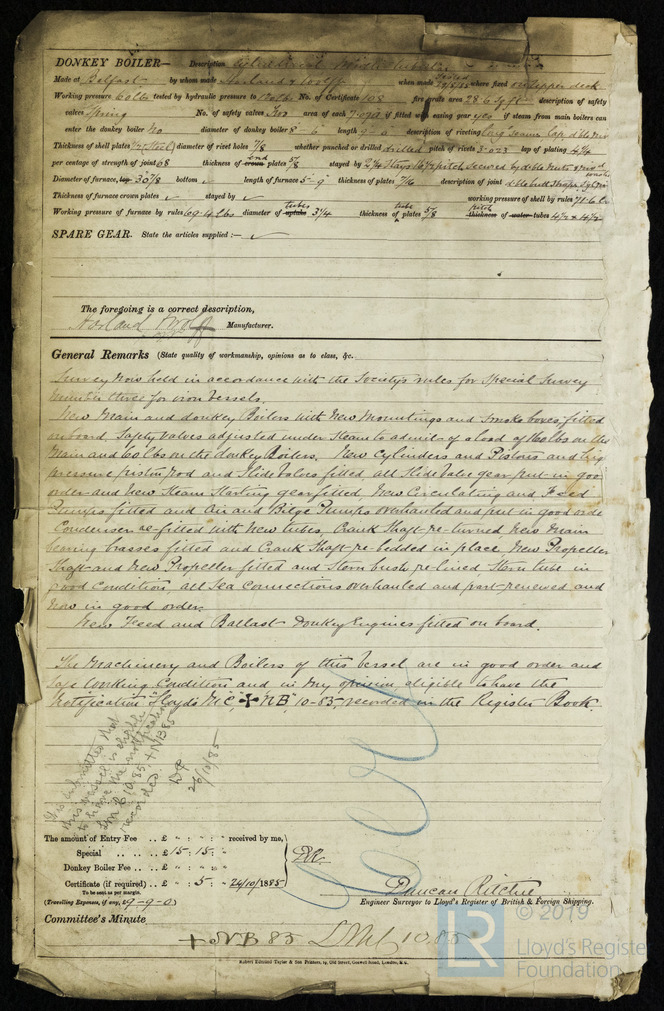 DONKEY BOILER— Description
Made at Belfast by whom made Harland & Wolff when made where fixed on upper deck
Working pressure 60 lbs tested by hydraulic pressure to 120 lbs No. of Certificate 108 fire grate area 28.6 sq ft description of safety
valves Spring No. of safety valves Two area of each 7.07 if fitted with easing gear yes if steam from main boilers can
enter the donkey boiler No diameter of donkey boiler 8'-6" length description of riveting Long Seams Lap dble riv
Thickness of shell plates diameter of rivet holes 7/8 whether punched or drilled drilled pitch of rivets 3.023 lap of plating 4 3/4
per centage of strength of joint 68 thickness of end crown plates 5/8 stayed by
Diameter of furnace, top 30 7/8 bottom ✓ length of furnace 5'-9" thickness of plates 7/16 description of joint dble butt straps
Thickness of furnace crown plates ✓ stayed by ✓ working pressure of shell by rules 71.6 lbs
Working pressure of furnace by rules 69.4 lbs diameter of uptake tubes 3 1/4 thickness of tube plates 5/8 pitch thickness of water tubes 4 1/2 x 4 1/2
SPARE GEAR. State the articles supplied:— ✓
The foregoing is a correct description,
Harland & Wolff Manufacturer.
General Remarks (State quality of workmanship, opinions as to class, &c.
Survey now held in accordance with the Society's rules for Special Survey
number three for iron vessels.
New Main and donkey Boilers with New Mountings and smoke boxes fitted
on board, Safety valves adjusted under steam to admit of a load of 160 lbs on the
Main and 60 lbs on the donkey Boilers. New Cylinders and Pistons and high
pressure piston rod and slide valves fitted all slide valve gear put in good
order and New Steam Starting gear fitted, New Circulating and Feed
Pumps fitted and Air and Bilge Pumps overhauled and put in good order
Condenser re-fitted with New tubes, Crank Shaft re-turned, New Main
bearing brasses fitted and Crank Shaft re-bedded in place, New Propeller
Shaft and New Propeller fitted and Stern bush re-lined Stern tube in
good Condition, all Sea Connections overhauled and part renewed and
now in good order.
New Feed and Ballast Donkey Engines fitted on board.
The Machinery and Boilers of this Vessel are in good order and
safe Working Condition and in my opinion eligible to have the
Notification "Lloyd's M.C." ✠ "NB" 10-85, recorded in the Register Book.
It is submitted that
this vessel is eligible
to have the notification
LMC 10.85. + NB 85
recorded.
26/10/85
The amount of Entry Fee .. £ " : " : " received by me,
Special .. .. .. £ 15 : 15 : "
Donkey Boiler Fee .. £ " : " : "
Certificate (if required) .. £ " : 5 : " 24/10/1885
To be sent as per margin.
(Travelling Expenses, if any, £ 9-9-0)
Duncan Ritchie
Engineer Surveyor to Lloyd's Register of British & Foreign Shipping.
Committee's Minute
+ NB 85 LMC 10.85
Robert Edmund Taylor & Son Printers, 19, Old Street, Goswell Road, London, E.C.
© 2019
LR
Lloyd's Register
Foundation